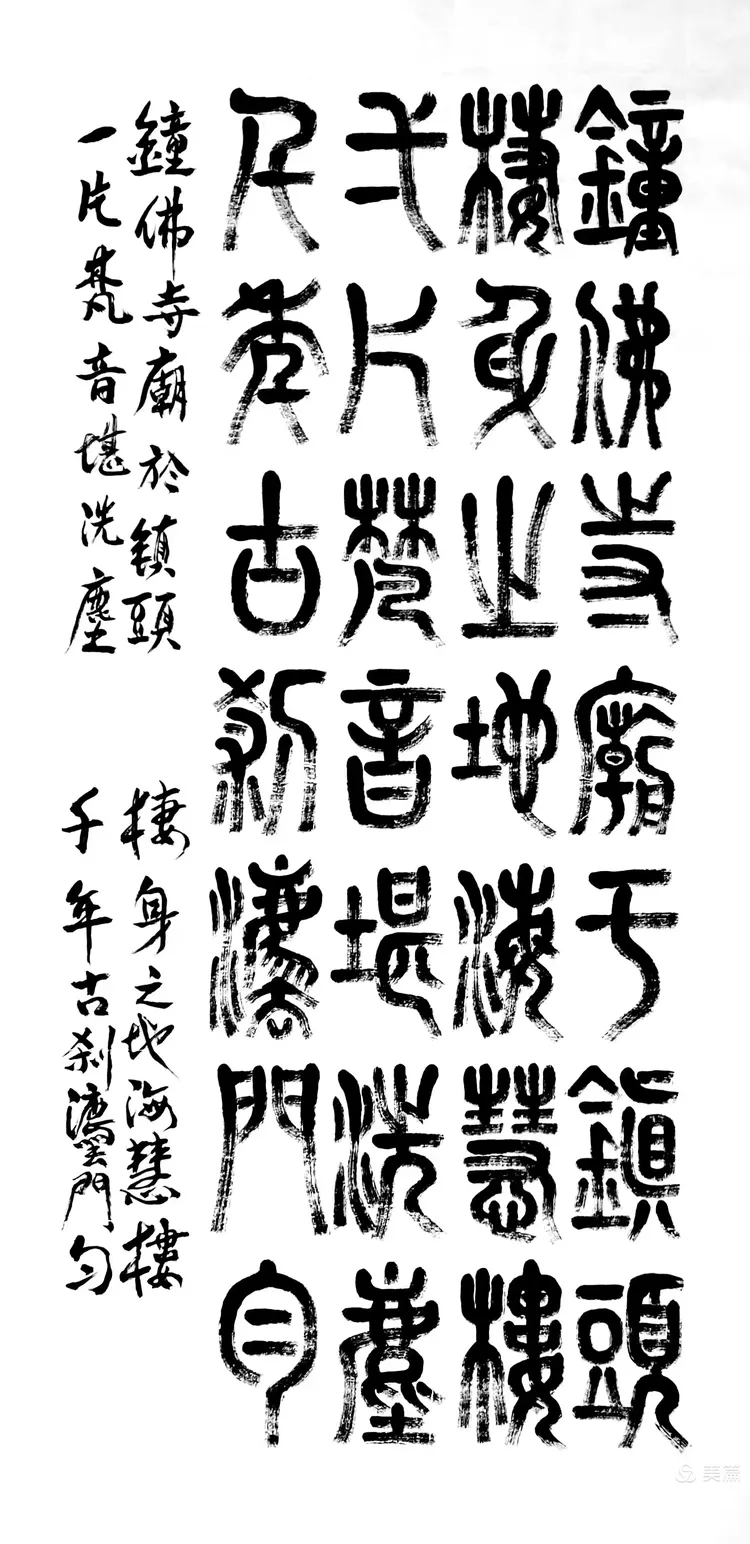 鐘佛寺廟于鎮頭
棲身之地海慧樓
弌片梵音堪洗塵
千年古刹灋門勻
鐘佛寺廟於鎮頭
棲身之地海慧樓
一片梵音堪洗塵
千年古刹灋門勻
美篇